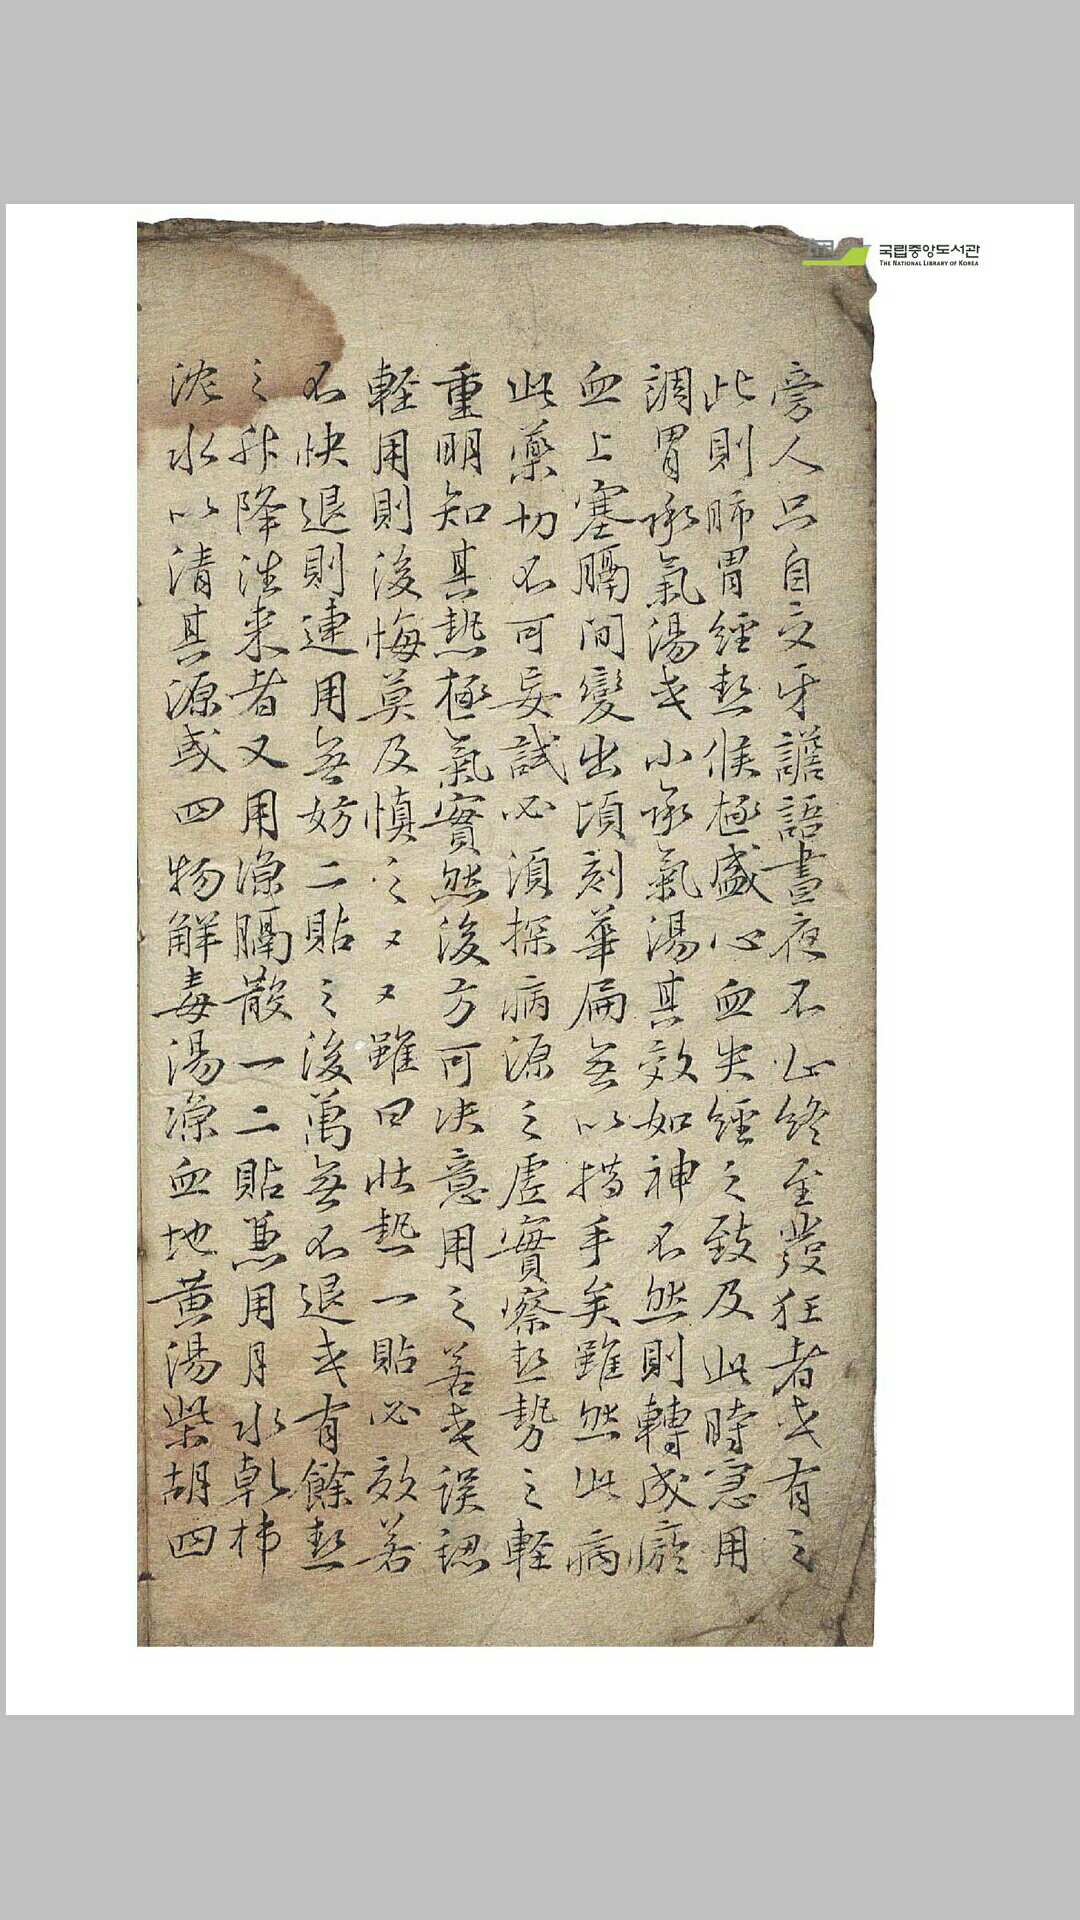 旁人只自交牙譫語晝夜不止終至發狂者或有之
此則肺胃經熱候極盛心血失經之致及此時急用
調胃承氣湯或小承氣湯其效如神不然則轉成瘀
血上塞膈間變出頃刻華扁無以措手矣雖然此病
此藥切不可妄試必須探病源之虛實察熱勢之輕
重明知其熱極氣實然後方可决意用之若或誤認
輕用則後悔莫及慎之又又雖曰壯熱一貼必效若
不快退則連用無妨二貼之後萬無不退或有餘熱
之升降往来者又用凉膈散一二貼兼用月水乾柿
沈水以清其源或四物解毒湯凉血地黄湯柴胡四
국립중앙도서관
THE NATIONAL LIBRARY OF KOREA